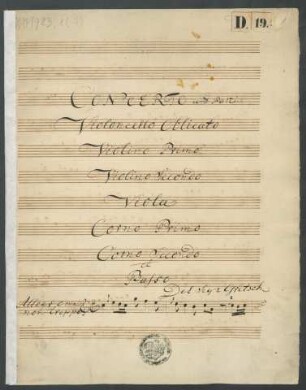 D. 19.
CONCERTO
Violoncello Oblicato
Violino Primo
Violino Secondo
Viola
Corno Primo
Corno Secondo
et
Basso
Del Sigr
Allegro ma
non troppo